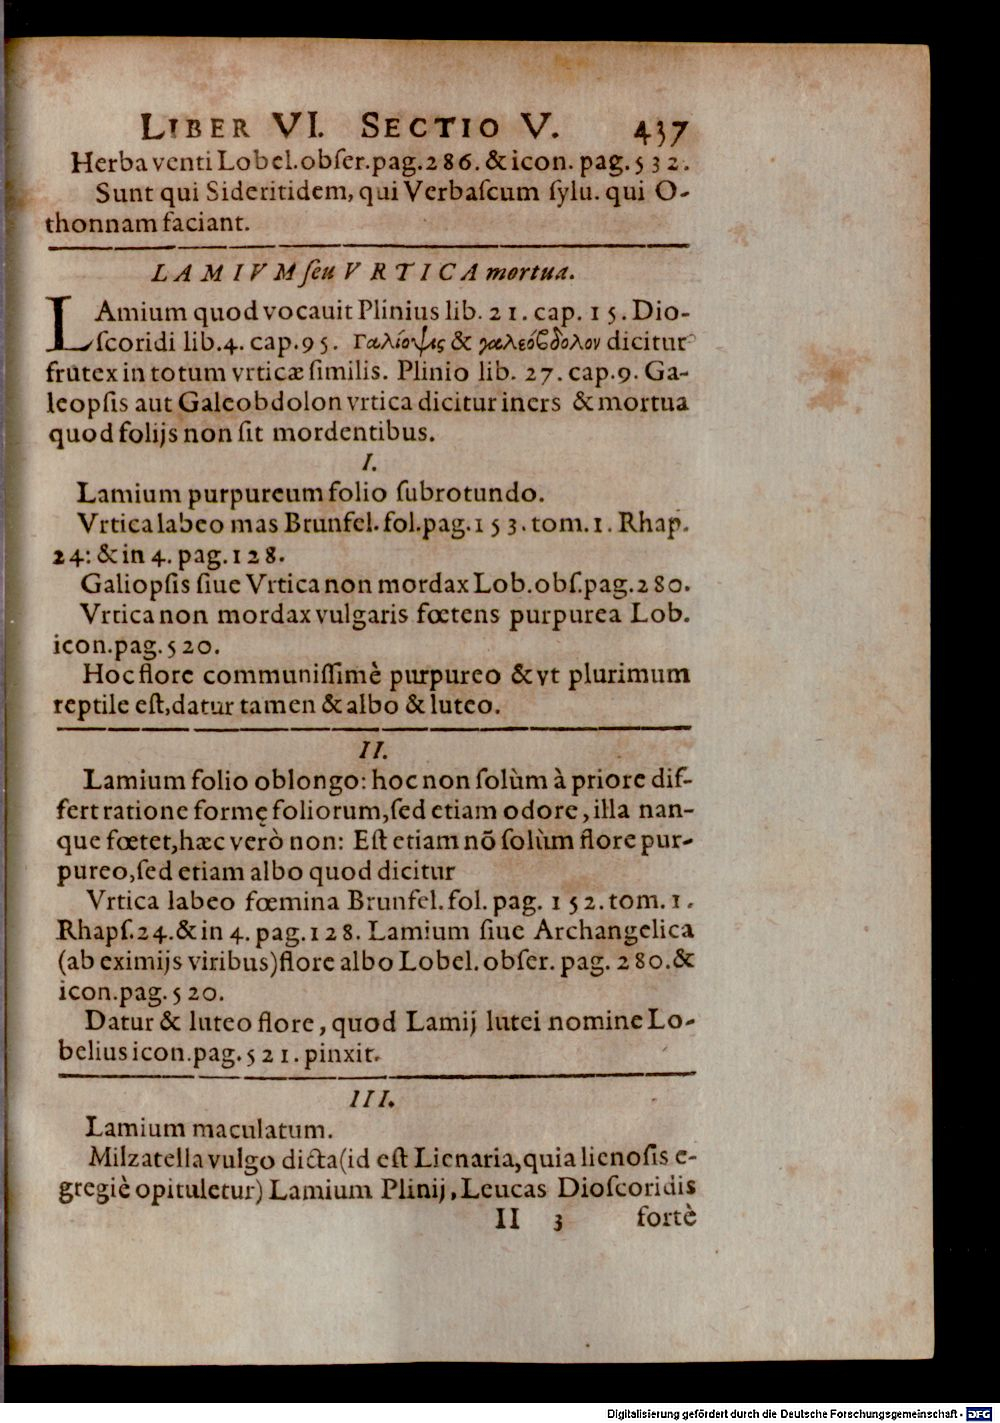 LIBER VI. SECTIO V. 437
Herba venti Lobel. obſer. pag. 286. & icon. pag. 532.
Sunt qui Sideritidem, qui Verbaſcum ſylu. qui O-
thonnam faciant.
LAMIVM ſeu VRTICA mortua.
LAmium quod vocauit Plinius lib. 21. cap. 15. Dio-
ſcoridi lib. 4. cap. 95. Γαλίοψις & γαλεόβδολον dicitur
frutex in totum vrticæ ſimilis. Plinio lib. 27. cap. 9. Ga-
leopſis aut Galeobdolon vrtica dicitur iners & mortua
quod folijs non ſit mordentibus.
I.
Lamium purpureum folio ſubrotundo.
Vrtica labeo mas Brunfel. fol. pag. 153. tom. 1. Rhap.
24: & in 4. pag. 128.
Galiopſis ſiue Vrtica non mordax Lob. obſ. pag. 280.
Vrtica non mordax vulgaris fœtens purpurea Lob.
icon. pag. 520.
Hoc flore communiſſimè purpureo & vt plurimum
reptile eſt, datur tamen & albo & luteo.
II.
Lamium folio oblongo: hoc non ſolùm à priore dif-
fert ratione formę foliorum, ſed etiam odore, illa nan-
que fœtet, hæc verò non: Eſt etiam nõ ſolùm flore pur-
pureo, ſed etiam albo quod dicitur
Vrtica labeo fœmina Brunfel. fol. pag. 152. tom. 1.
Rhapſ. 24. & in 4. pag. 128. Lamium ſiue Archangelica
(ab eximijs viribus) flore albo Lobel. obſer. pag. 280. &
icon. pag. 520.
Datur & luteo flore, quod Lamij lutei nomine Lo-
belius icon. pag. 521. pinxit.
III.
Lamium maculatum.
Milzatella vulgo dicta (id eſt Lienaria, quia lienoſis e-
gregiè opituletur) Lamium Plinij, Leucas Dioſcoridis
II 3 fortè
Digitalisierung gefördert durch die Deutsche Forschungsgemeinschaft - DFG